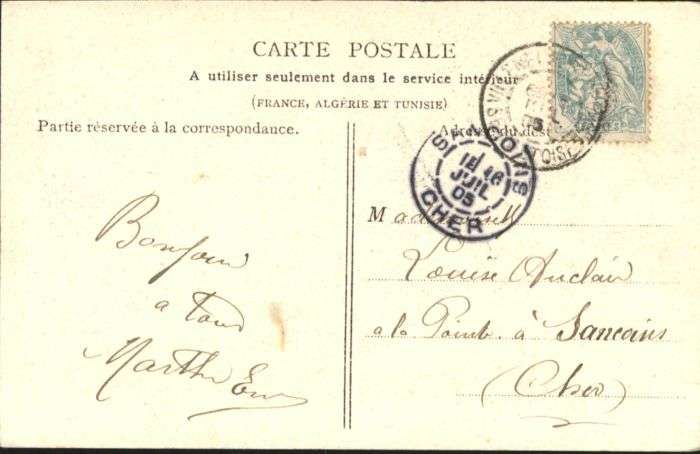 CARTE POSTALE
A utiliser seulement dans le service intérieur
(FRANCE, ALGÉRIE ET TUNISIE)
Partie réservée à la correspondance.
Adresse du dest
SANCOINS
16
JUIL
05
CHER
OISE
Bonjour
a tous
Marthe
Mademoiselle
Louise Auclair
a la Pointe à Sancoins
(Cher)